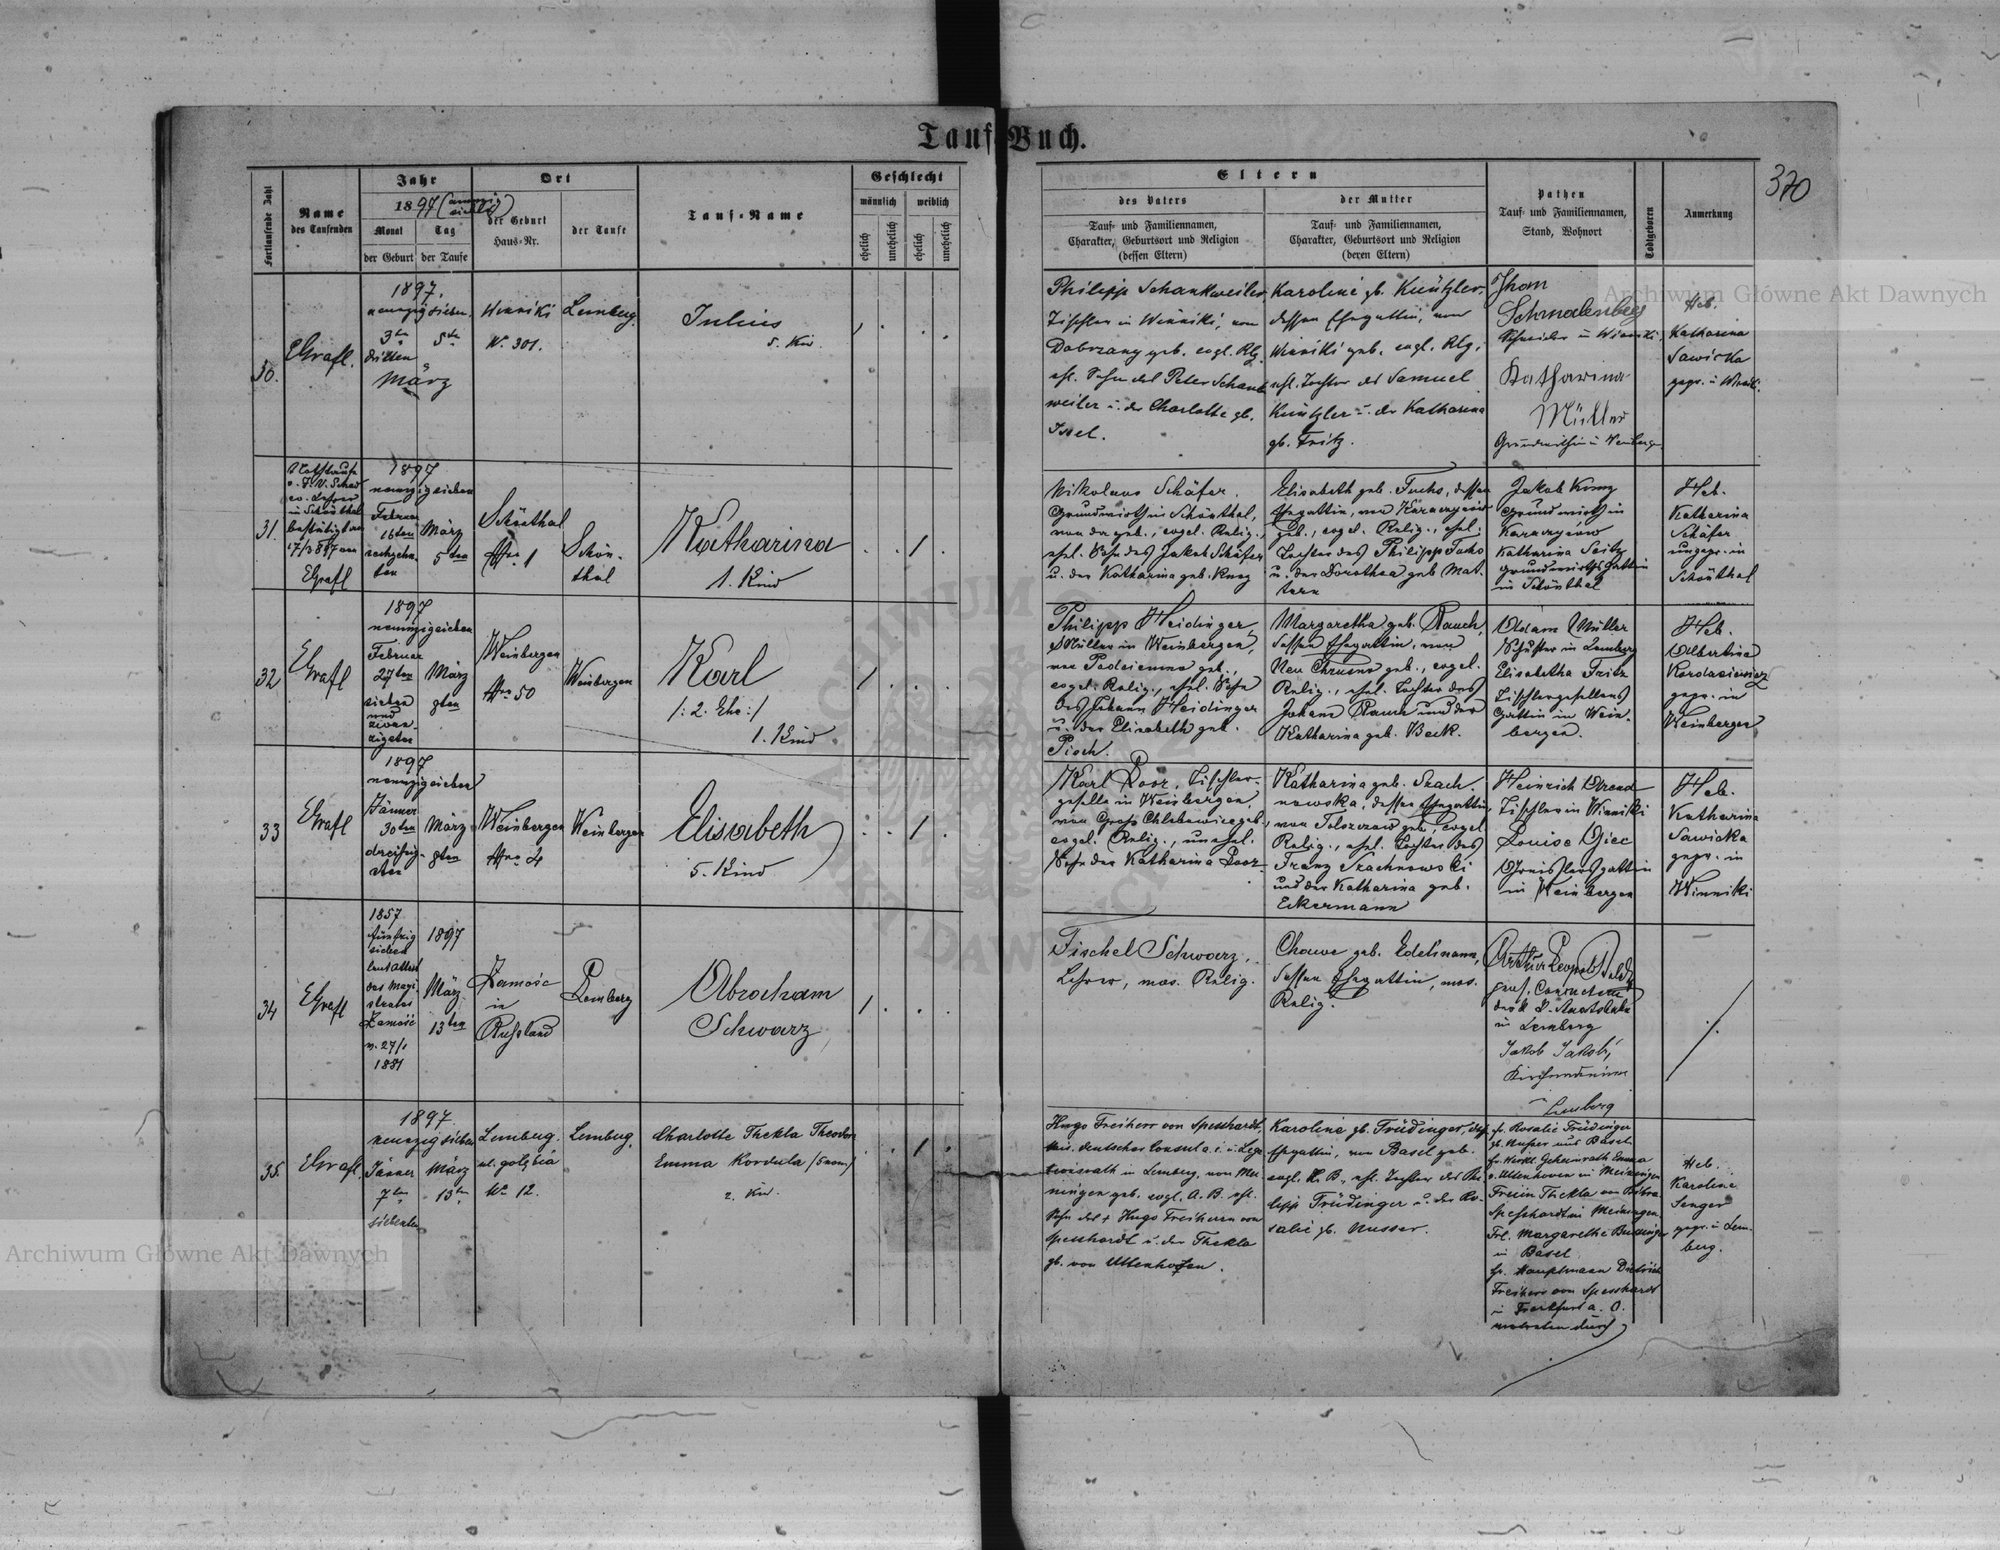 Tauf-Buch.
370
Fortlaufende Zahl
Name
des Taufenden
Jahr
1897
Monat
Tag
der Geburt
der Taufe
Ort
der Geburt
Haus-Nr.
der Taufe
Tauf-Name
Geschlecht
männlich
weiblich
ehelich
unehelich
ehelich
unehelich
Eltern
des Vaters
Tauf- und Familiennamen,
Charakter, Geburtsort und Religion
(dessen Eltern)
der Mutter
Tauf- und Familiennamen,
Charakter, Geburtsort und Religion
(deren Eltern)
Pathen
Tauf- und Familiennamen,
Stand, Wohnort
Todtgeboren
Anmerkung
30.
EGrafl.
1897.
neunzigsieben
3ten
5te
dritten
März
Winniki
N. 301.
Lemberg.
Julius
5. Kin
Philipp Schankweiler
Tischler in Winniki, von
Dobrzany geb. evgl. Rlg.
ehl. Sohn des Peter Schank
weiler u. der Charlotte gb.
Issel.
Karoline gb. Küntzler
dessen Ehegattin, von
Winniki geb. evgl. Rlg.
ehl. Tochter des Samuel
Küntzler u. der Katharina
gb. Fritz.
Schmalenberg
Schneider in Winniki
Katharina
Müller
Heb.
Katharina
Sawicka
gepr. i. Winniki
31.
Nothtaufe
in Schönthal
bestätigt am
EGrafl
1897
neunzigsieben
Februar
16ten
sechzehn
ten
März
5ten
Schönthal
Nro 1
Schön-
thal
Katharina
1. Kind
Nikolaus Schäfer,
Grundwirth in Schönthal,
von da geb., evgel. Relig.,
ehel. Sohn des Jakob Schäfer
u. der Katharina geb. Kunz
Elisabeth geb. Fuchs, dessen
Ehegattin, von Karaczynow
geb., evgel. Relig., ehel.
Tochter des Philipp Fuchs
u. der Dorothea geb. Mat-
tern
Jakob Kunz
Grundwirth in
Karaczynow
Katharina Seitz
Grundwirths Gattin
in Schönthal
Heb.
Katharina
Schäfer
ungepr. in
Schönthal
32
EGrafl
1897
neunzigsieben
Februar
27ten
sieben
und
zwan-
zigsten
März
8ten
Weinbergen
Nro 50
Weinbergen
Karl
/: 2. Ehe :/
1. Kind
Philipp Heidinger,
Müller in Weinbergen,
evgel. Relig., ehel. Sohn
des Johann Heidinger
u. der Elisabeth geb.
Pisch.
Margaretha geb. Rauch,
dessen Ehegattin, von
Neu Chrusno geb., evgel.
Relig., ehel. Tochter des
Johann Rauch und der
Katharina geb. Beck.
Adam Müller
Schuster in Lemberg
Elisabetha Fritz
Tischlergesellens
Gattin in Wein-
bergen.
Heb.
Albertina
gepr. in
Weinbergen
33
EGrafl
1897
neunzigsieben
Jänner
30ten
dreißig-
sten
März
8ten
Weinbergen
Nro 2
Weinbergen
Elisabeth
5. Kind
Karl Door, Tischler-
geselle in Weinbergen,
von Groß Chlebowice geb.,
evgel. Relig., unehel.
Sohn der Katharina Door
Katharina geb. Szach-
nowska, dessen Ehegattin,
von Tolszczow geb., evgel.
Relig., ehel. Tochter des
Franz Szachnowski
und der Katharina geb.
Eckermann
Heinrich Arend
Tischler in Winniki
Louise Gjec
in Weinbergen
Heb.
Katharina
Sawicka
gepr. in
Winniki
34
EGrafl
1857
fünfzig
sieben
laut Attest
des Magi-
strates
Zamość
v. 27/1
1881
1897
März
13ten
Zamość
in
Rußland
Lemberg
Abraham
Schwarz
Fischel Schwarz,
Lehrer, mos. Relig.
Chawe geb. Edelmann,
dessen Ehegattin, mos.
Relig.
Arthur Leopold
in Lemberg
Jakob Jakobi,
Lemberg
35.
EGrafl.
1897
neunzigsieben
Jänner
7ten
siebenten
März
13ten
Lemberg.
ul. gołębia
No 12.
Lemberg.
Charlotte Thekla Theodora
Emma Kordula /5 nom/
2. Kin
Hugo Freiherr von Speßhardt,
kais. deutscher Consul a. i. u. Lega
tionsrath in Lemberg, von Mei
ningen geb. evgl. A. B. ehl.
Sohn des + Hugo Freiherrn von
Speßhardt u. der Thekla
gb. von Uttenhofen.
Karoline gb. Trüdinger, des
Ehegattin, von Basel geb.
evgl. H. B., ehl. Tochter des Phi
lipp Trüdinger u. der Ro-
salie gb. Nusser.
fr. Rosalie Trüdinger
gb. Nusser aus Basel
v. Uttenhoven in Meiningen
Freiin Thekla von Bibra
Speßhardt in Meiningen.
Frl. Margarethe
in Basel
Hr. Hauptmann Dietrich
Freiherr von Spesshardt
in Frankfurt a. O.
vertreten durch
Heb.
Karoline
Senger
gepr. i. Lem
berg.
Archiwum Główne Akt Dawnych
Archiwum Główne Akt Dawnych